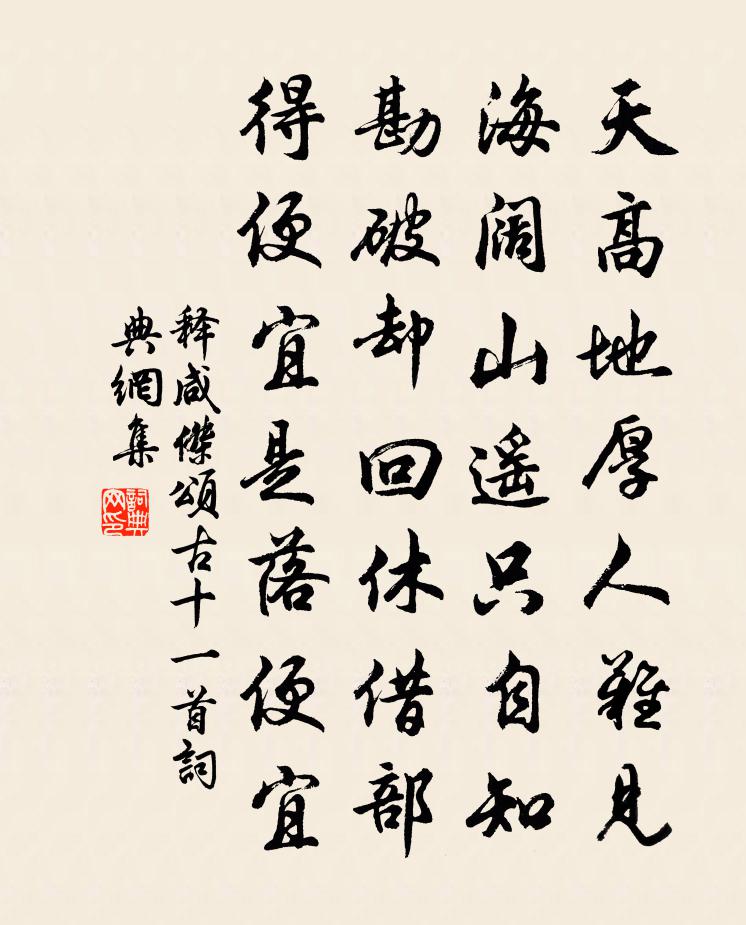 天高地厚人難見
海阔山遥只自知
勘破却回休借部
得便宜是落便宜
释咸傑頌古十一首詞
典網集
詞典
网印